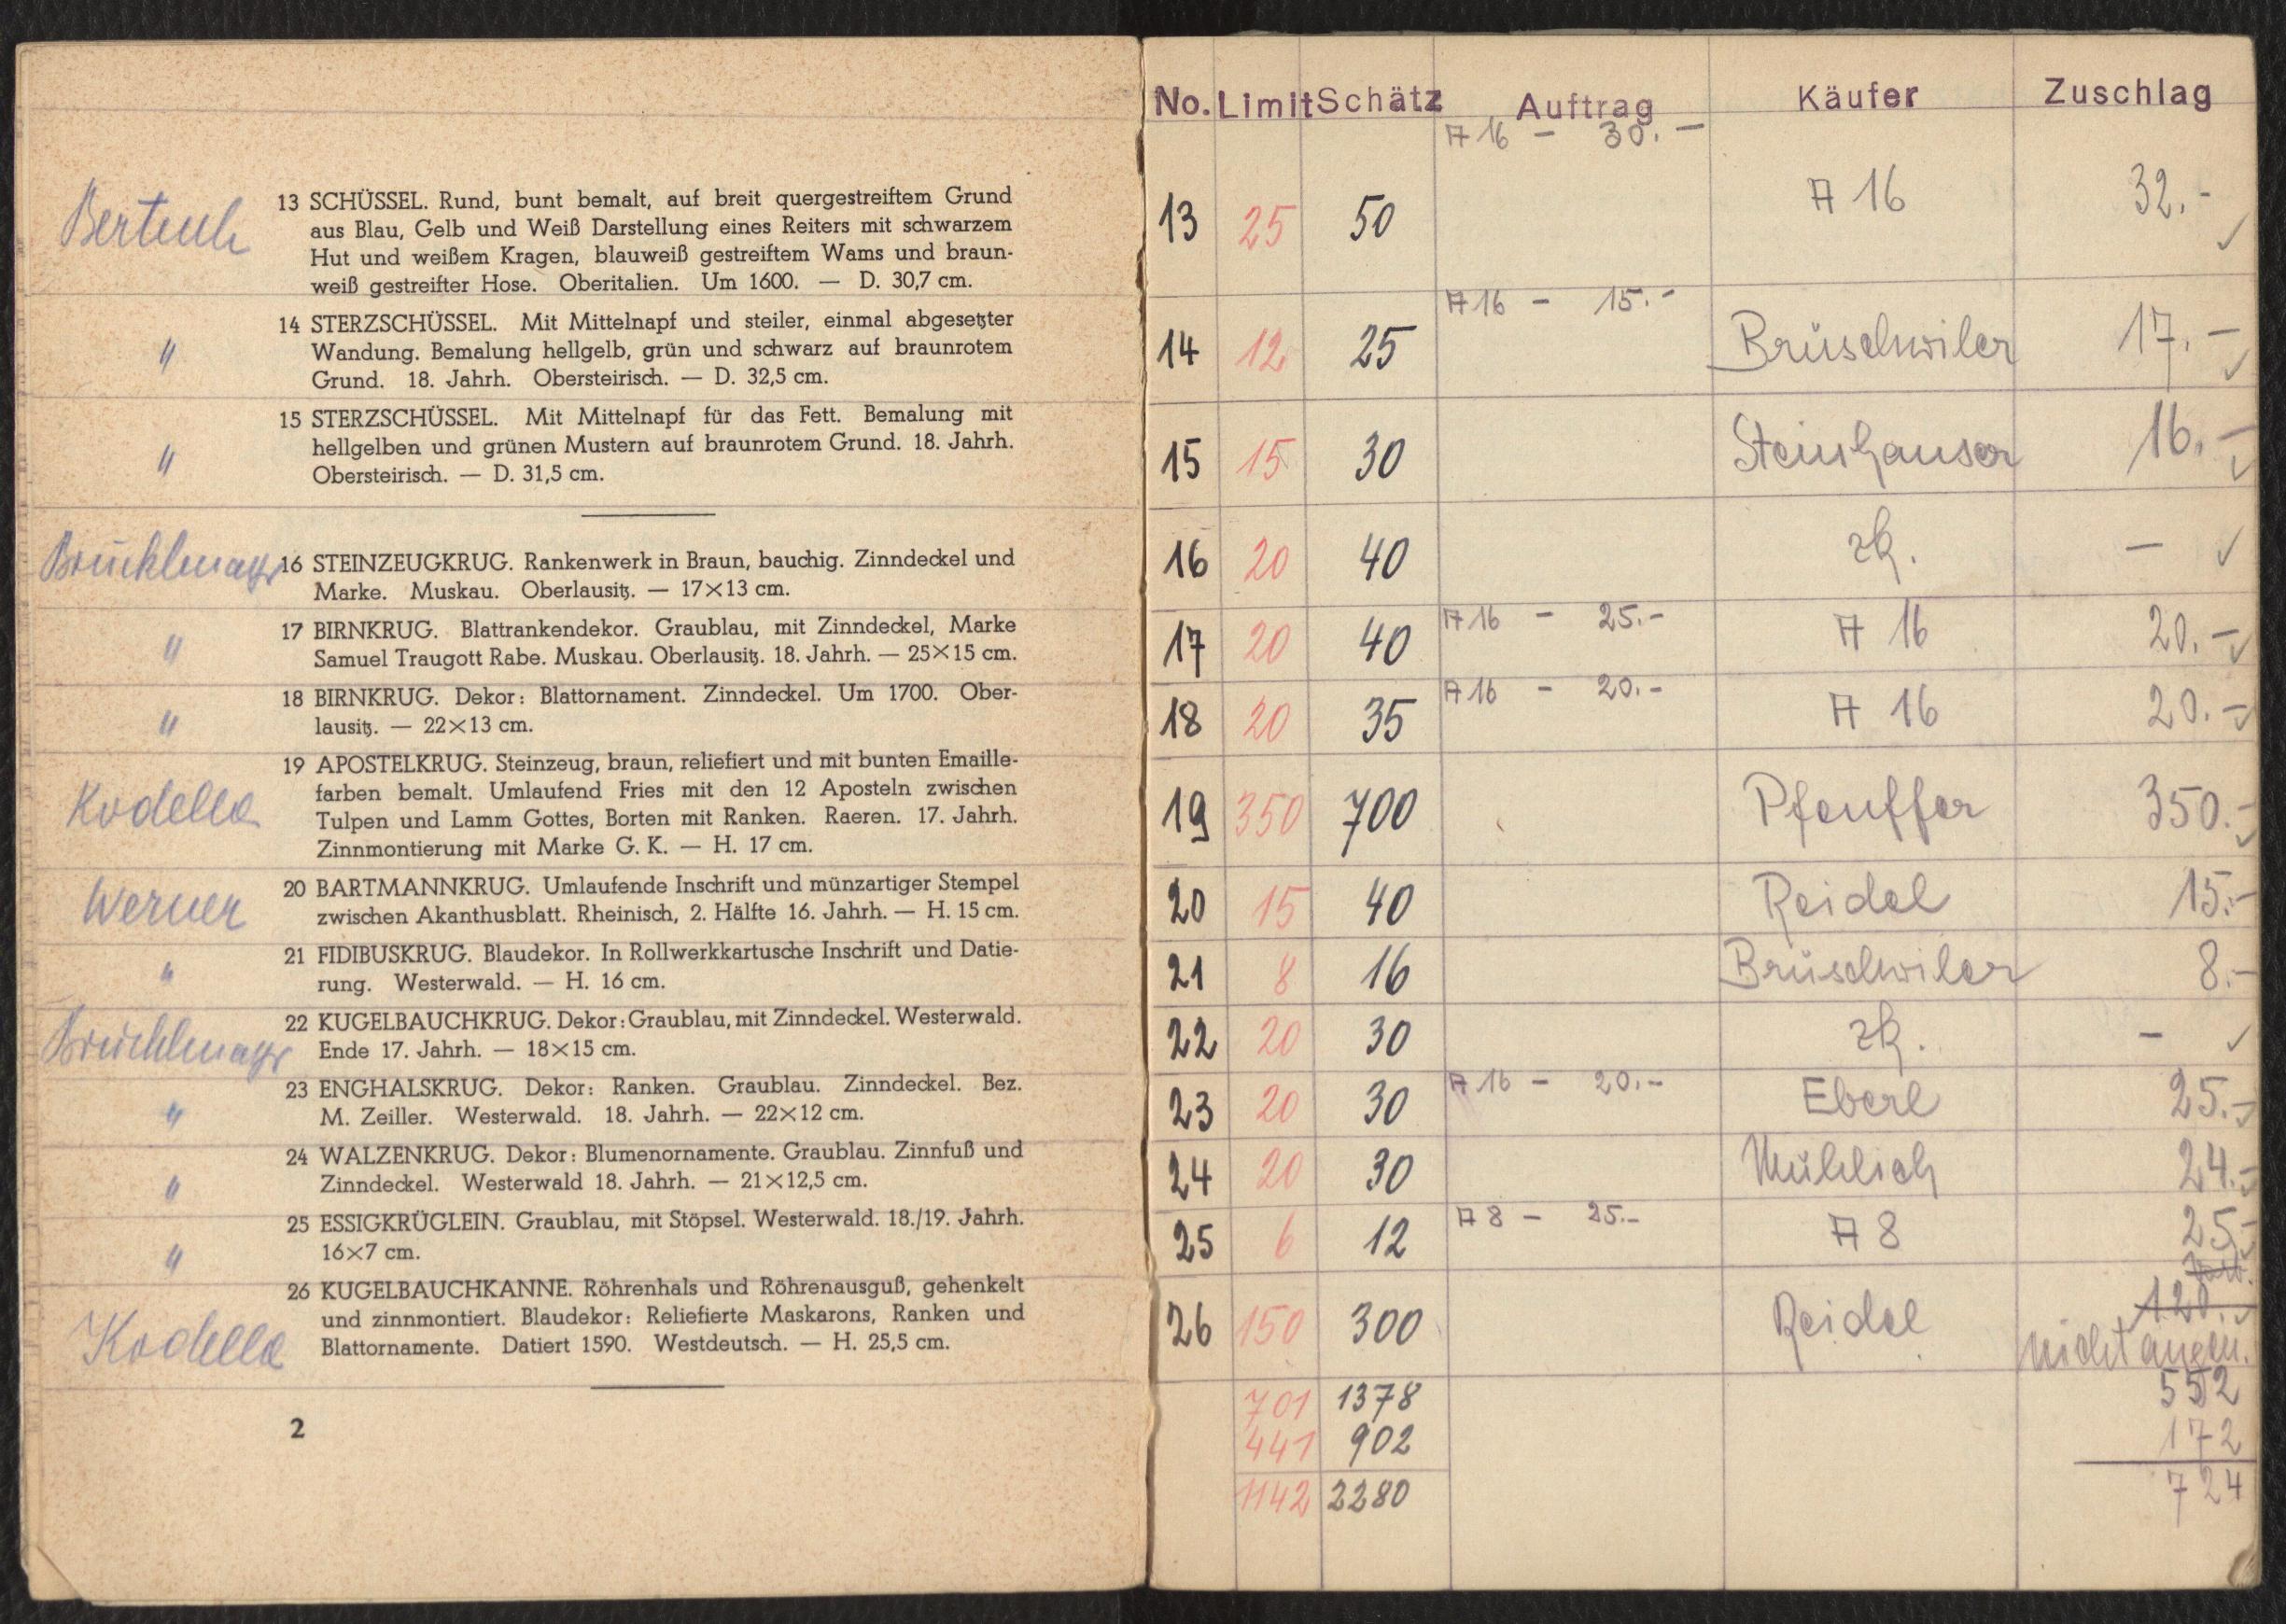 Berteuh
13 SCHÜSSEL. Rund, bunt bemalt, auf breit quergestreiftem Grund
aus Blau, Gelb und Weiß Darstellung eines Reiters mit schwarzem
Hut und weißem Kragen, blauweiß gestreiftem Wams und braun-
weiß gestreifter Hose. Oberitalien. Um 1600. — D. 30,7 cm.
" 14 STERZSCHÜSSEL. Mit Mittelnapf und steiler, einmal abgesetzter
Wandung. Bemalung hellgelb, grün und schwarz auf braunrotem
Grund. 18. Jahrh. Obersteirisch. — D. 32,5 cm.
" 15 STERZSCHÜSSEL. Mit Mittelnapf für das Fett. Bemalung mit
hellgelben und grünen Mustern auf braunrotem Grund. 18. Jahrh.
Obersteirisch. — D. 31,5 cm.
Brücklmayr 16 STEINZEUGKRUG. Rankenwerk in Braun, bauchig. Zinndeckel und
Marke. Muskau. Oberlausitz. — 17×13 cm.
" 17 BIRNKRUG. Blattrankendekor. Graublau, mit Zinndeckel, Marke
Samuel Traugott Rabe. Muskau. Oberlausitz. 18. Jahrh. — 25×15 cm.
" 18 BIRNKRUG. Dekor: Blattornament. Zinndeckel. Um 1700. Ober-
lausitz. — 22×13 cm.
Kodella 19 APOSTELKRUG. Steinzeug, braun, reliefiert und mit bunten Emaille-
farben bemalt. Umlaufend Fries mit den 12 Aposteln zwischen
Tulpen und Lamm Gottes, Borten mit Ranken. Raeren. 17. Jahrh.
Zinnmontierung mit Marke G. K. — H. 17 cm.
Werner 20 BARTMANNKRUG. Umlaufende Inschrift und münzartiger Stempel
zwischen Akanthusblatt. Rheinisch, 2. Hälfte 16. Jahrh. — H. 15 cm.
" 21 FIDIBUSKRUG. Blaudekor. In Rollwerkkartusche Inschrift und Datie-
rung. Westerwald. — H. 16 cm.
Brücklmayr 22 KUGELBAUCHKRUG. Dekor: Graublau, mit Zinndeckel. Westerwald.
Ende 17. Jahrh. — 18×15 cm.
" 23 ENGHALSKRUG. Dekor: Ranken. Graublau. Zinndeckel. Bez.
M. Zeiller. Westerwald. 18. Jahrh. — 22×12 cm.
" 24 WALZENKRUG. Dekor: Blumenornamente. Graublau. Zinnfuß und
Zinndeckel. Westerwald 18. Jahrh. — 21×12,5 cm.
" 25 ESSIGKRÜGLEIN. Graublau, mit Stöpsel. Westerwald. 18./19. Jahrh.
16×7 cm.
Kodella 26 KUGELBAUCHKANNE. Röhrenhals und Röhrenausguß, gehenkelt
und zinnmontiert. Blaudekor: Reliefierte Maskarons, Ranken und
Blattornamente. Datiert 1590. Westdeutsch. — H. 25,5 cm.
2
No. Limit Schätz Auftrag Käufer Zuschlag
A 16 – 30.–
13 25 50 A 16 32.– ✓
A 16 – 15.–
14 12 25 Brüschwiler 17.– ✓
15 15 30 Steinhauser 16.– ✓
16 20 40 zk. – ✓
17 20 40 A 16 – 25.– A 16 20.– ✓
18 20 35 A 16 – 20.– A 16 20.– ✓
19 350 700 Pfeuffer 350.– ✓
20 15 40 Reidel 15.–
21 8 16 Brüschwiler 8.–
22 20 30 zk. – ✓
23 20 30 A 16 – 20.– Eberl 25.– ✓
24 20 30 Mühlich 24.– ✓
25 6 12 A 8 – 25.– A 8 25.– ✓
26 150 300 Reidel 120.– ✓
nicht angen.
701 1378 552
441 902 172
1142 2280 724